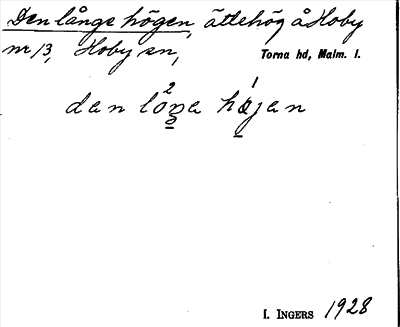 Den långe högen, ättehög å Hoby
nr 13, Hoby sn, Torna hd, Malm. l.
den låŋa højen
I. INGERS 1928